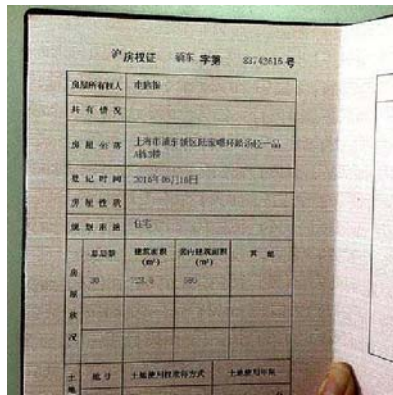 沪房权证 浦东 字第 83743616 号
房屋所有权人
共有情况
房屋坐落 上海市浦东新区陆家嘴环路汤臣一品
A栋3楼
登记时间 2016年06月16日
房屋性质
规划用途 住宅
房屋状况
总层数 建筑面积(m²) 套内建筑面积(m²) 其他
土地
地号 土地使用权取得方式 土地使用年限